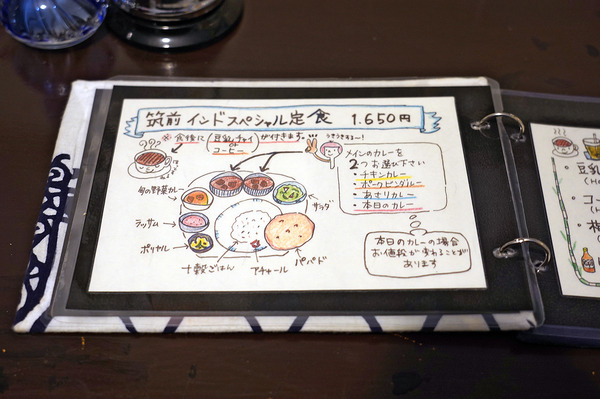 筑前 インドスペシャル定食 1.650円
※食後に(豆乳チャイ or コーヒー)が付きます。
うきうきするー!
メインのカレーを
2つお選び下さい
・チキンカレー
・ポークビンダルー
・あさりカレー
・本日のカレー
旬の野菜カレー
サラダ
ラッサム
ポリヤル
十穀ごはん
アチャール
パパド
本日のカレーの場合
お値段が変わることが
あります
・豆乳
・コー